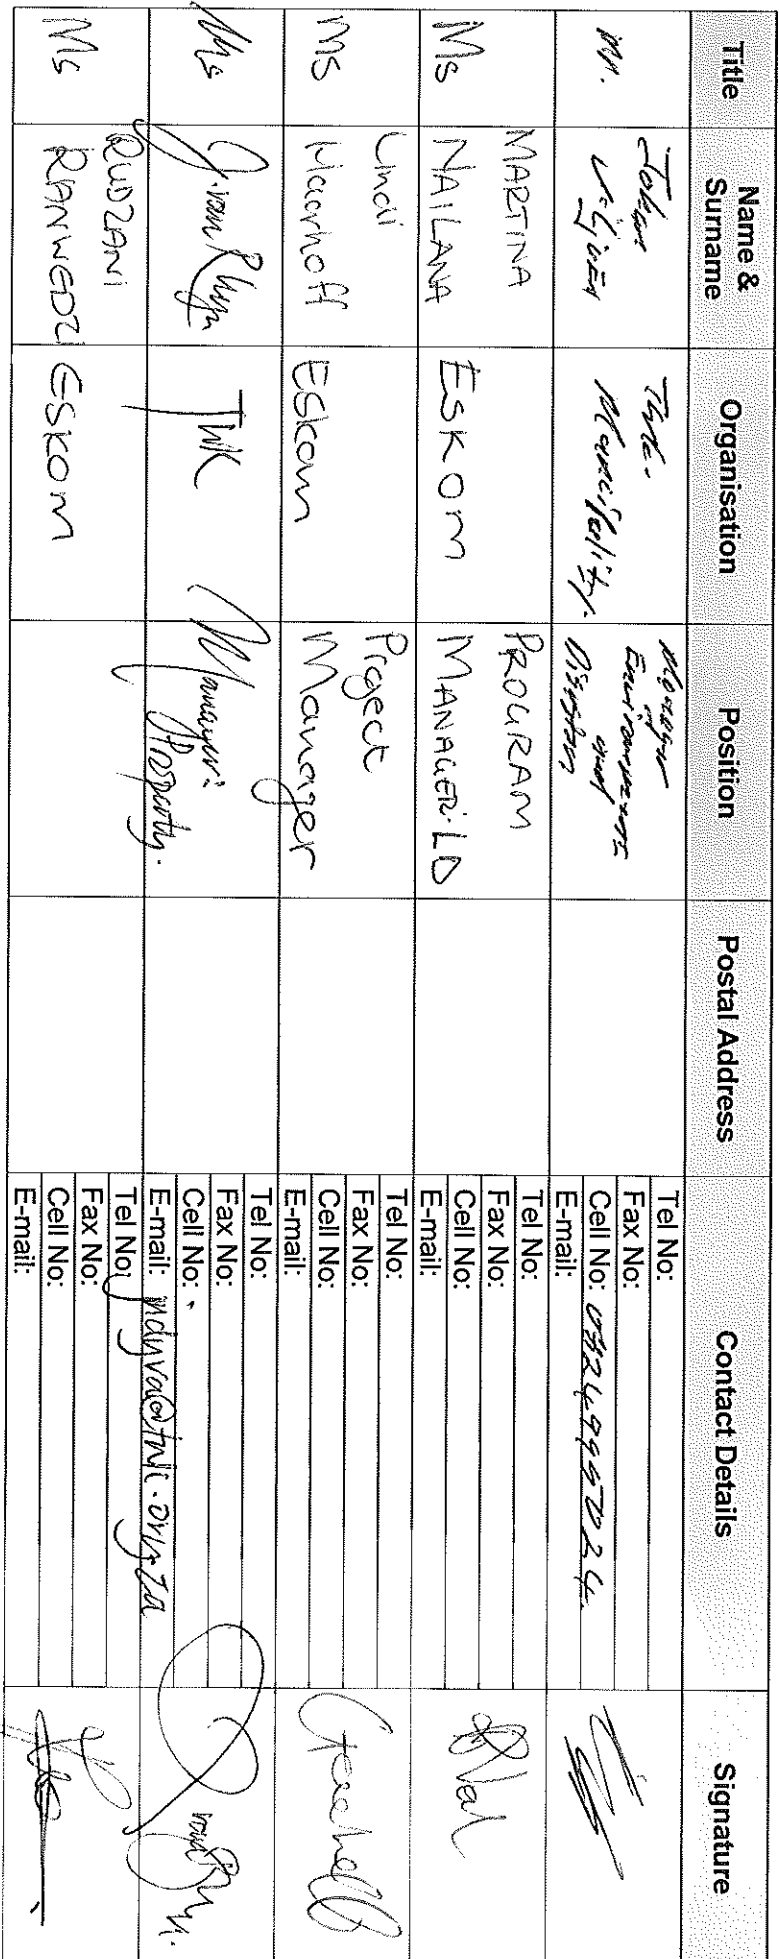 Title
Name &
Surname
Organisation
Position
Postal Address
Contact Details
Signature
Mr.
Johan
Viljoen
TWK.
Municipality.
Manager
Environment
and
Disaster
Tel No:
Fax No:
Cell No:
E-mail:
Ms
MARTINA
NAILANA
ESKOM
PROGRAM
MANAGER: LD
Tel No:
Fax No:
Cell No:
E-mail:
Ms
Lindi
Haarhoff
Eskom
Project
Manager
Tel No:
Fax No:
Cell No:
E-mail:
Ms
J. van Rhyn
TWK
Manager:
Property.
Tel No:
Fax No:
Cell No:
E-mail:
Ms
RUDZANI
RANWEDZI
ESKOM
Tel No:
Fax No:
Cell No:
E-mail: